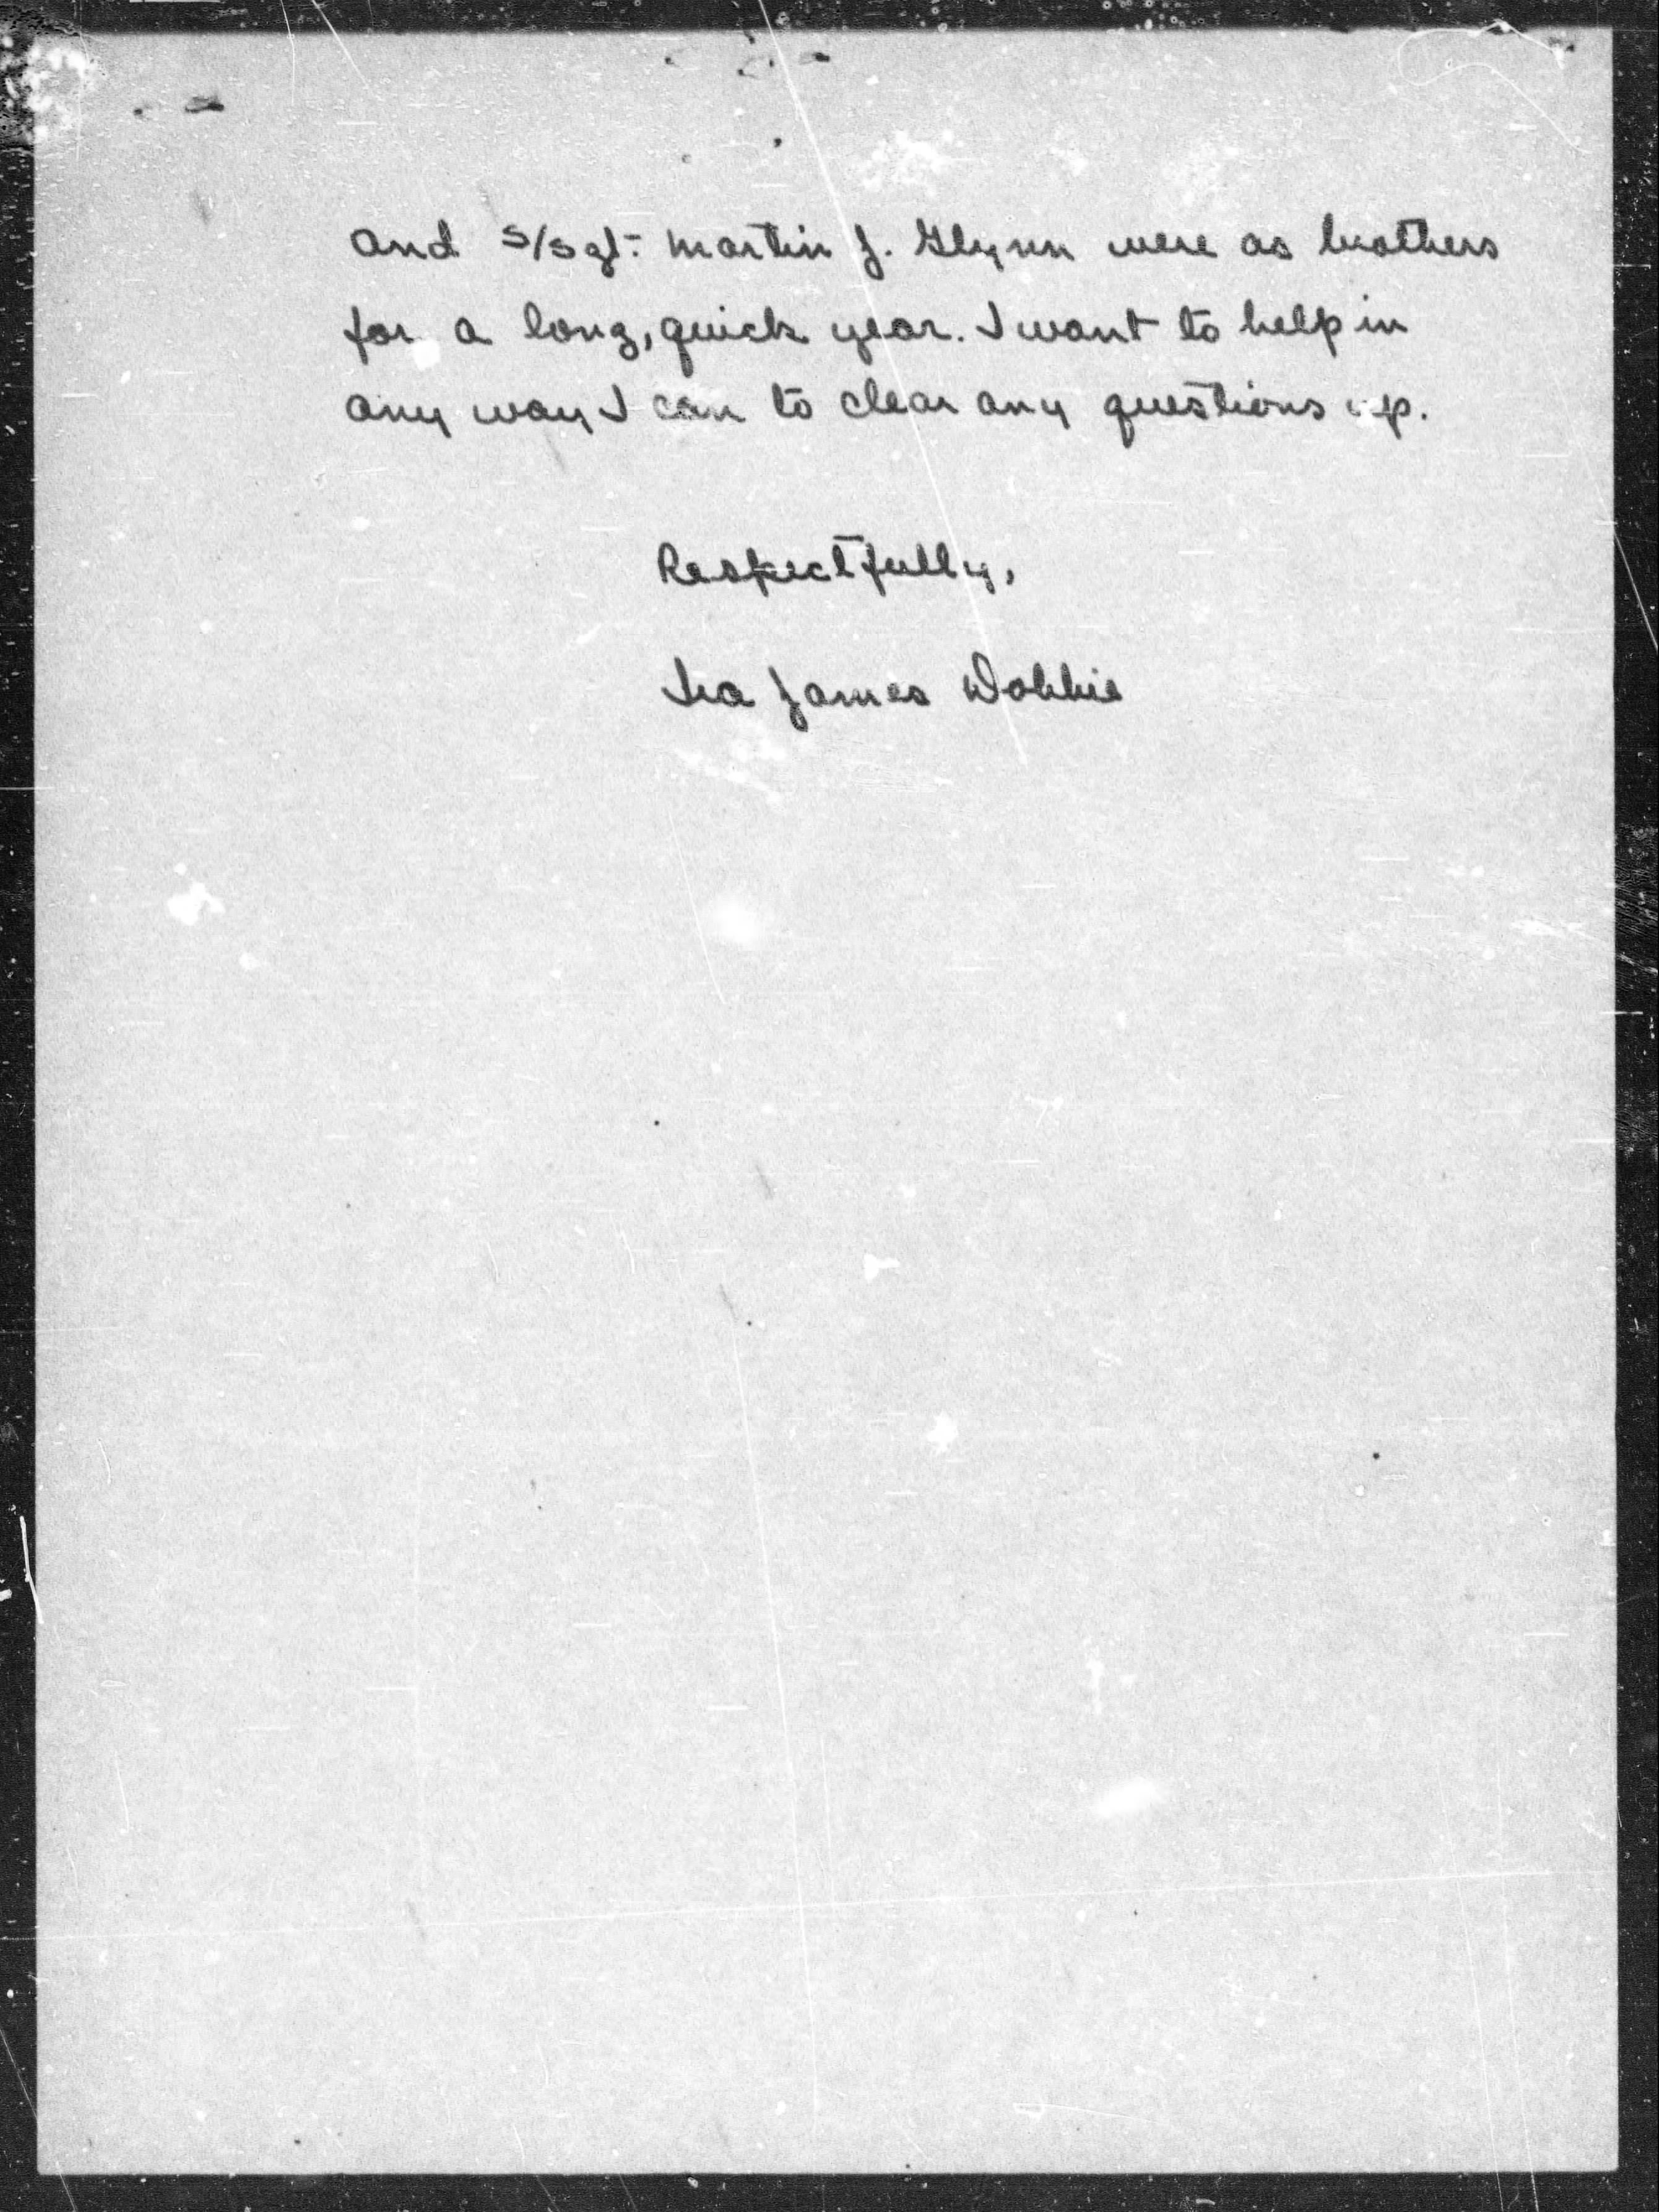 and S/Sgt. Martin J. Glynn were as brothers
for a long, quick year. I want to help in
any way I can to clear any questions up.
Respectfully,
Ira James Dobbie